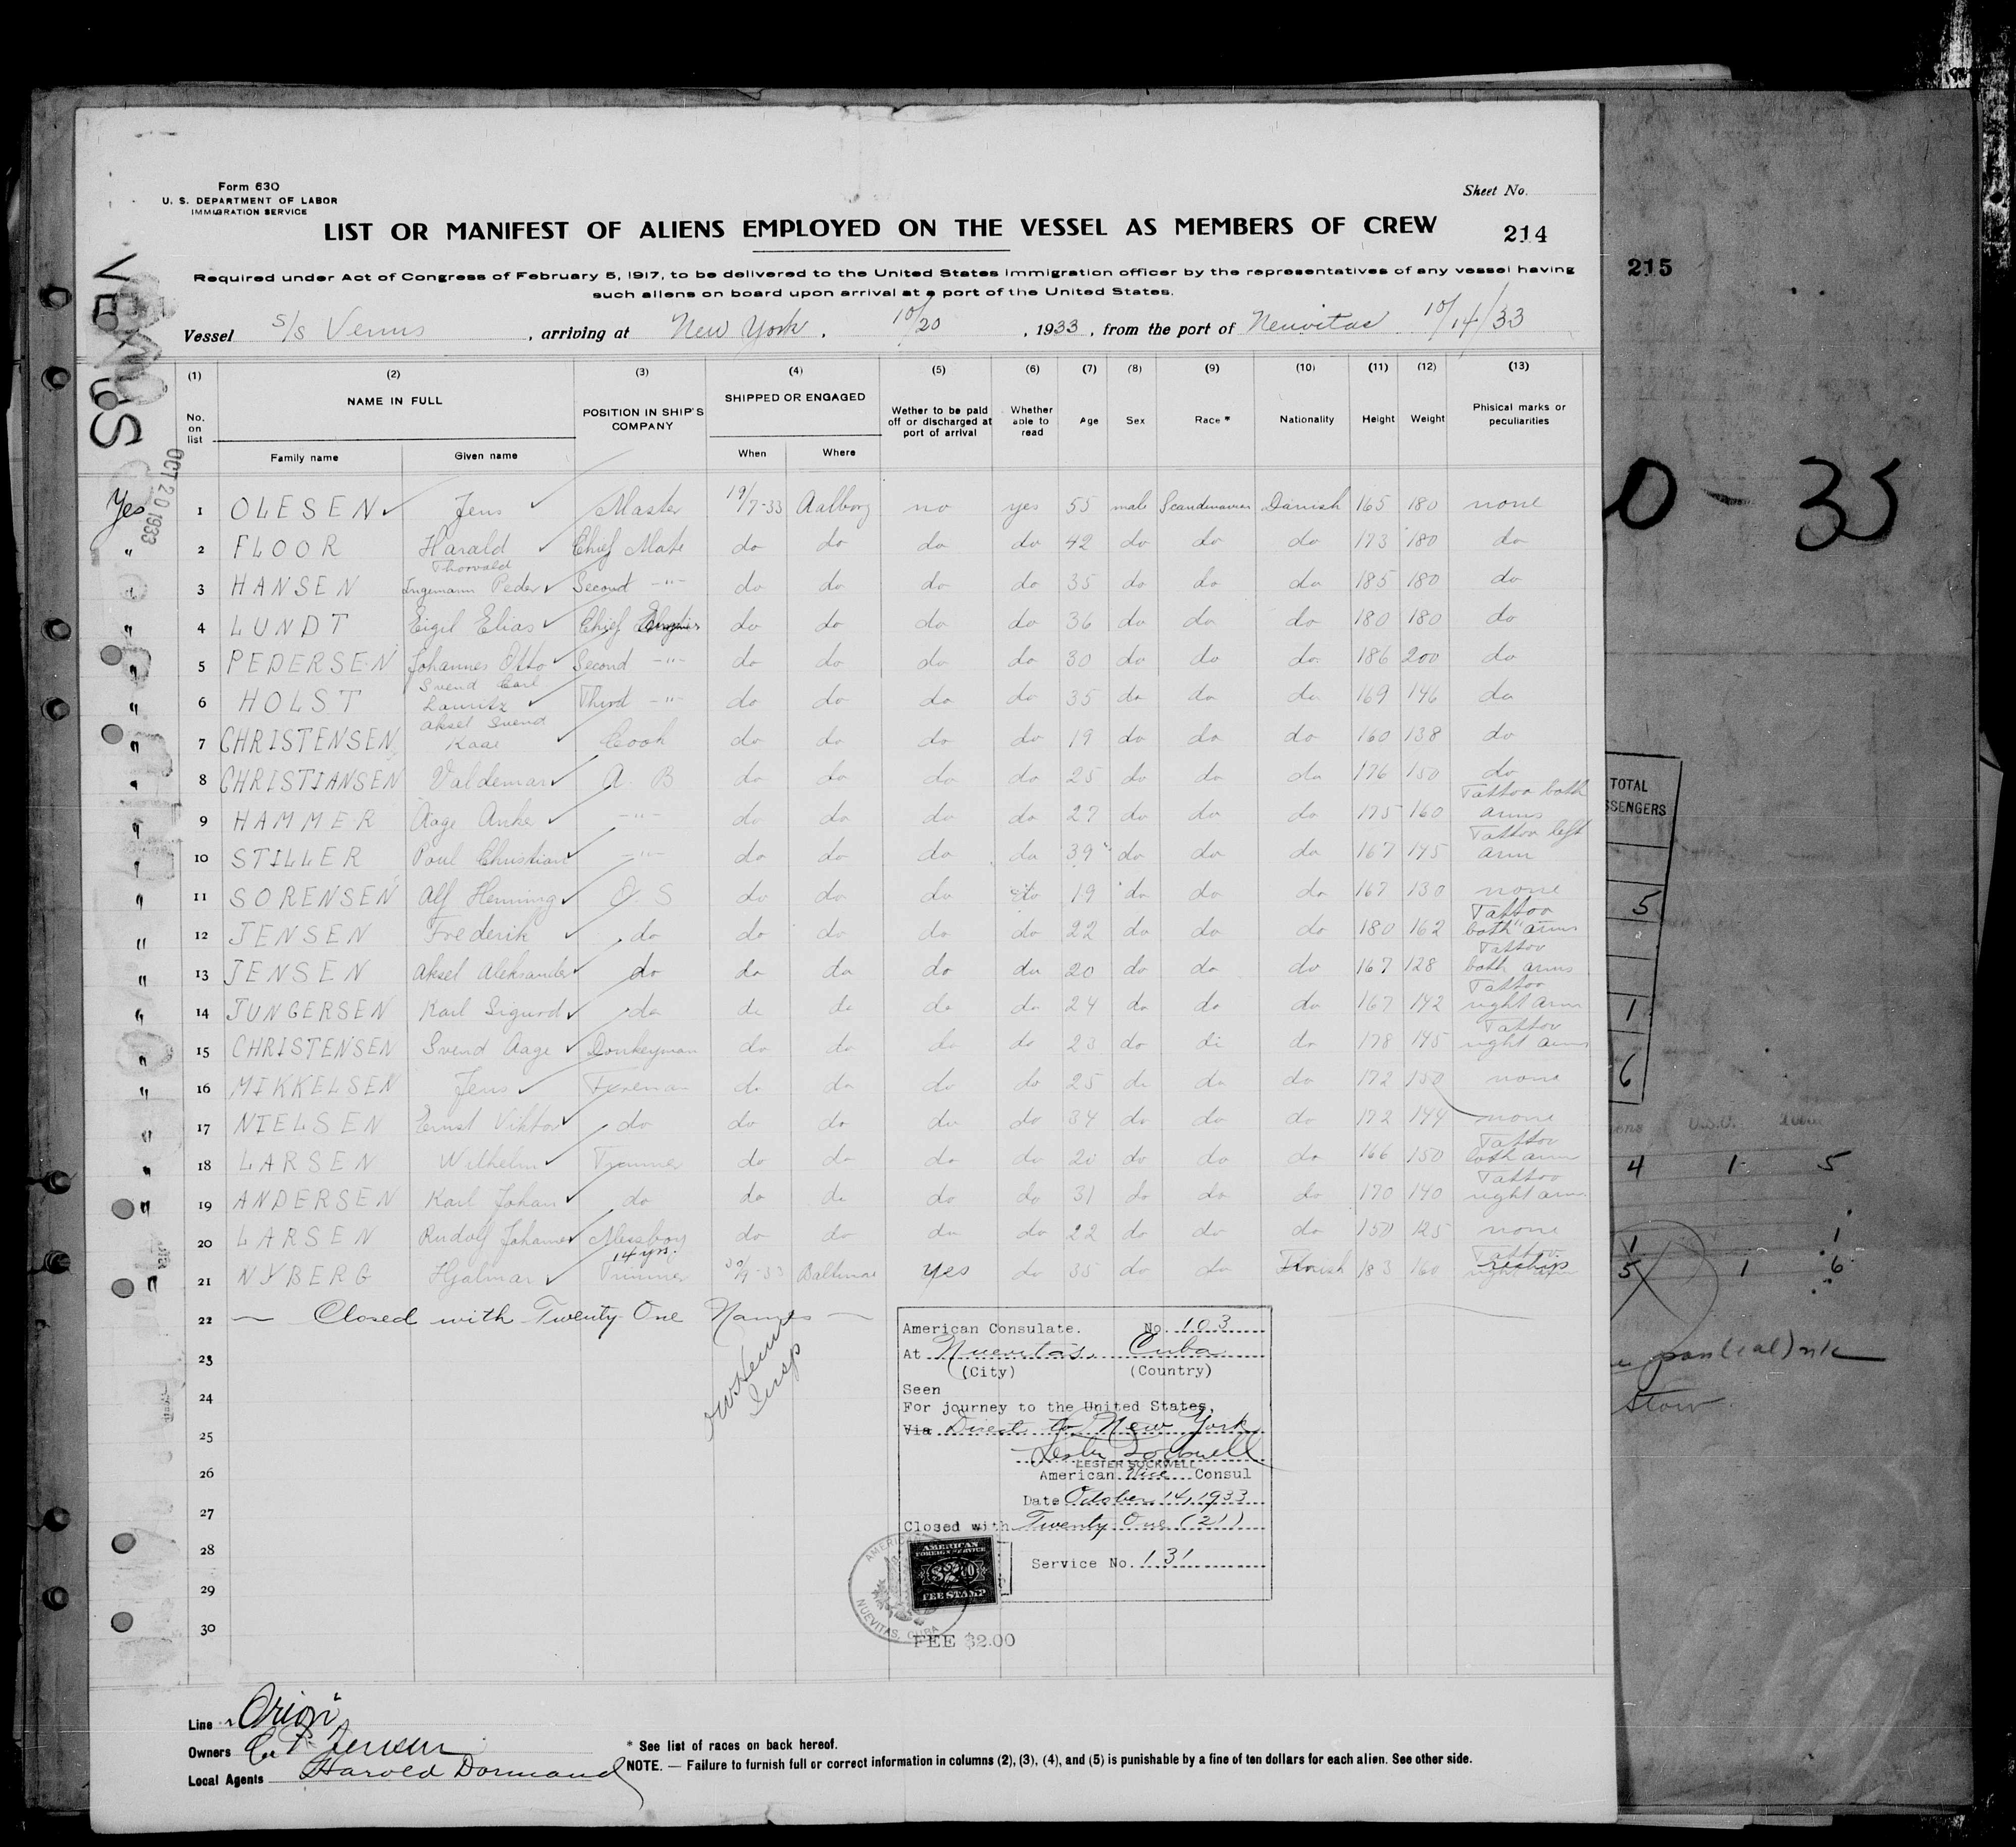 Form 630
U. S. DEPARTMENT OF LABOR
IMMIGRATION SERVICE
Sheet No.
LIST OR MANIFEST OF ALIENS EMPLOYED ON THE VESSEL AS MEMBERS OF CREW
214
215
Required under Act of Congress of February 5, 1917, to be delivered to the United States Immigration officer by the representatives of any vessel having
such aliens on board upon arrival at a port of the United States.
Vessel S/S Venus , arriving at New York , 10/20 , 1933 , from the port of Neuvitas 10/14/33
VENUS
OCT 20 1933
(1) (2) (3) (4) (5) (6) (7) (8) (9) (10) (11) (12) (13)
No. on list NAME IN FULL Family name Given name POSITION IN SHIP'S COMPANY SHIPPED OR ENGAGED When Where Wether to be paid off or discharged at port of arrival Whether able to read Age Sex Race * Nationality Height Weight Phisical marks or peculiarities
Yes 1 OLESEN Jens Master 19/7-33 Aalborg no yes 55 male Scandinavian Danish 165 180 none
" 2 FLOOR Harald Chief Mate do do do do 42 do do do 173 180 do
" 3 HANSEN Thorvald Ingemann Peder Second -"- do do do do 35 do do do 185 180 do
" 4 LUNDT Eigil Elias Chief do do do do 36 do do do 180 180 do
" 5 PEDERSEN Johannes Otto Second -"- do do do do 30 do do do 186 200 do
" 6 HOLST Svend Carl Lauritz Third -"- do do do do 35 do do do 169 146 do
" 7 CHRISTENSEN Aksel Svend Kaae Cook do do do do 19 do do do 160 138 do
" 8 CHRISTIANSEN Valdemar A. B do do do do 25 do do do 176 150 do
" 9 HAMMER Aage Anke -"- do do do do 27 do do do 175 160 Tattoo both arms
" 10 STILLER Poul Christian -"- do do do do 39 do do do 167 145 Tattoo left arm
" 11 SORENSEN Alf Henning O. S do do do do 19 do do do 167 130 none
" 12 JENSEN Frederik do do do do do 22 do do do 180 162 Tattoo both arms
" 13 JENSEN Aksel Aleksander do do do do do 20 do do do 167 128 Tattoo both arms
" 14 JUNGERSEN Karl Sigurd do do do do do 24 do do do 167 142 Tattoo right arm
" 15 CHRISTENSEN Svend Aage Donkeyman do do do do 23 do do do 178 145 Tattoo right arm
" 16 MIKKELSEN Jens Fireman do do do do 25 do do do 172 150 none
" 17 NIELSEN Ernst Viktor do do do do do 34 do do do 172 144 none
" 18 LARSEN Wilhelm Trimmer do do do do 20 do do do 166 150 Tattoo both arm
" 19 ANDERSEN Karl Johan do do do do do 31 do do do 170 140 Tattoo right arm
20 LARSEN Rudolf Johannes Messboy do do do do 22 do do do 150 125 none
" 21 NYBERG Hjalmar 14 yrs. Trimmer 30/9-33 Baltimore yes do 35 do do 183 160 Tattoo right arm
22 — Closed with Twenty One Names —
23
24
25
26
27
28
29
30
Insp
American Consulate. No. 103
At Nuevitas, Cuba
(City) (Country)
Seen
For journey to the United States,
Via Direct to New York
Lester Sockwell
LESTER SOCKWELL
American Vice Consul
Date October 14, 1933
Closed with Twenty One (21)
Service No. 131
AMERICAN
FOREIGN SERVICE
$2.00
FEE STAMP
NUEVITAS, CUBA
FEE $2.00
Line "Orion"
Owners C. P. Jensen
Local Agents Harold Dormand
* See list of races on back hereof.
NOTE. — Failure to furnish full or correct information in columns (2), (3), (4), and (5) is punishable by a fine of ten dollars for each alien. See other side.
0 - 35
TOTAL
5
1
6
4 1 5
1 1
5 1 6